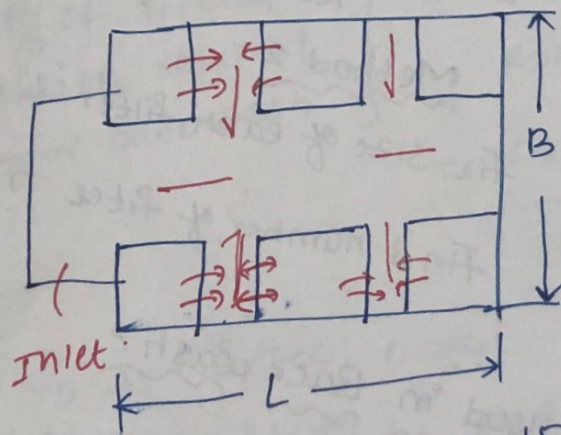 B
Inlet
L